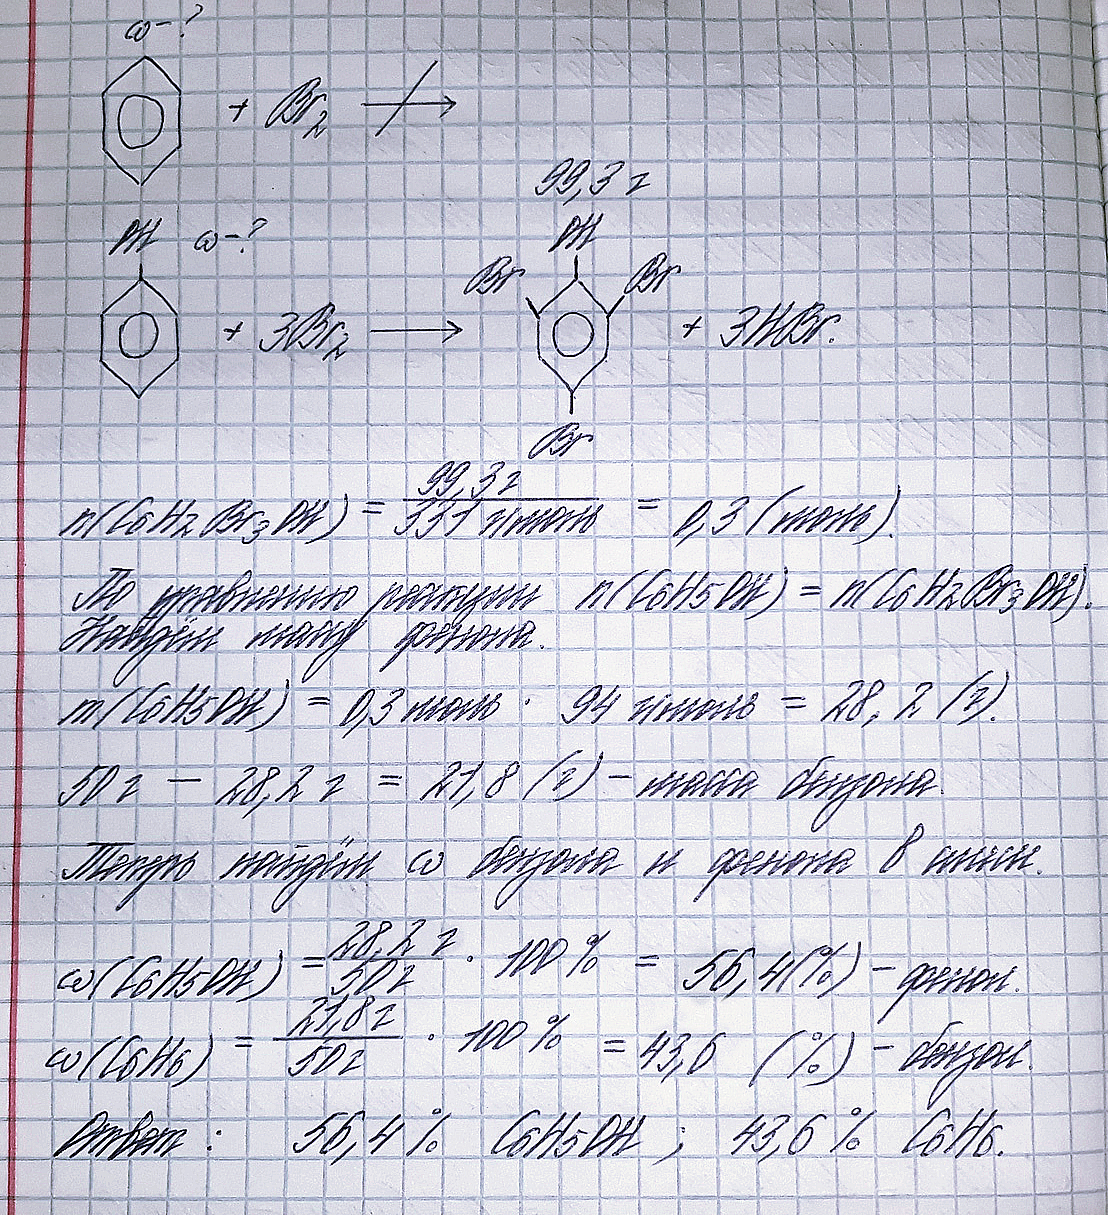 ω-?
+ Br2
99,3 г
OH ω-?
OH
Br Br
+ 3Br2 + 3HBr.
Br
n(C6H2Br3OH) = 99,3 г / 331 г/моль = 0,3 (моль).
По уравнению реакции n(C6H5OH) = n(C6H2Br3OH).
Найдём массу фенола.
m(C6H5OH) = 0,3 моль · 94 г/моль = 28,2 (г).
50 г – 28,2 г = 21,8 (г) – масса бензола.
Теперь найдём ω бензола и фенола в смеси.
ω(C6H5OH) = 28,2 г / 50 г · 100 % = 56,4(%) – фенол.
ω(C6H6) = 21,8 г / 50 г · 100 % = 43,6 (%) – бензол.
Ответ: 56,4 % C6H5OH ; 43,6 % C6H6.